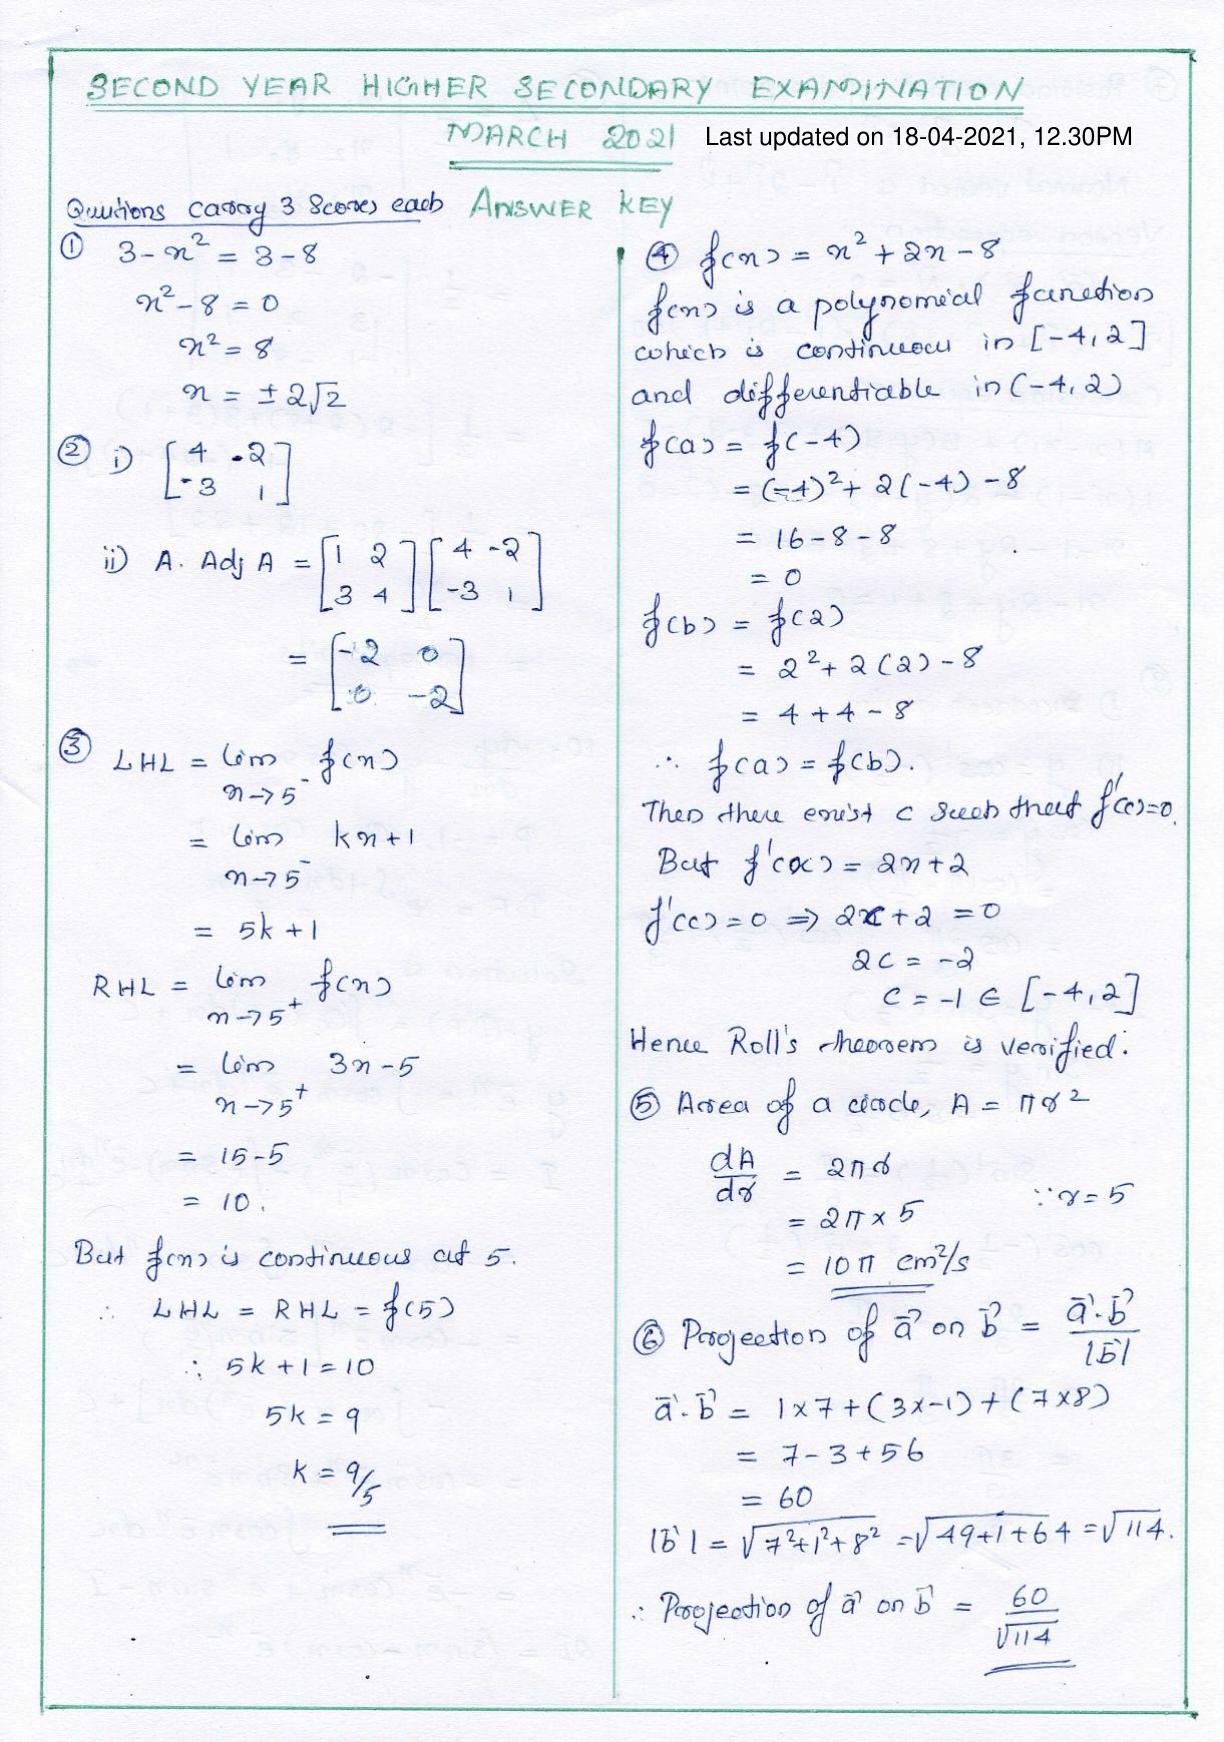 SECOND YEAR HIGHER SECONDARY EXAMINATION
MARCH 2021 Last updated on 18-04-2021, 12.30PM
Questions carry 3 Scores each ANSWER KEY
① 3 - x² = 3 - 8
x² - 8 = 0
x² = 8
x = ± 2√2
② i) [4 -2
-3 1]
ii) A. Adj A = [1 2
3 4] [4 -2
-3 1]
= [-2 0
0 -2]
③ LHL = lim f(x)
x→5⁻
= lim kx+1
x→5⁻
= 5k+1
RHL = lim f(x)
x→5⁺
= lim 3x-5
x→5⁺
= 15-5
= 10.
But f(x) is continuous at 5.
∴ LHL = RHL = f(5)
∴ 5k+1 = 10
5k = 9
k = 9/5
④ f(x) = x² + 2x - 8
f(x) is a polynomial function
which is continuous in [-4, 2]
and differentiable in (-4, 2)
f(a) = f(-4)
= (-4)² + 2(-4) - 8
= 16 - 8 - 8
= 0
f(b) = f(2)
= 2² + 2(2) - 8
= 4 + 4 - 8
∴ f(a) = f(b).
Then there exist c such that f'(c)=0.
But f'(x) = 2x+2
f'(c)=0 ⇒ 2c+2 = 0
2c = -2
c = -1 ∈ [-4, 2]
Hence Roll's theorem is verified.
⑤ Area of a circle, A = πr²
dA/dr = 2πr
= 2π × 5 ∵ r = 5
= 10π cm²/s
⑥ Projection of a⃗ on b⃗ = a⃗·b⃗/|b⃗|
a⃗·b⃗ = 1×7+(3×-1)+(7×8)
= 7-3+56
= 60
|b⃗| = √7²+1²+8² = √49+1+64 = √114.
∴ Projection of a⃗ on b⃗ = 60/√114